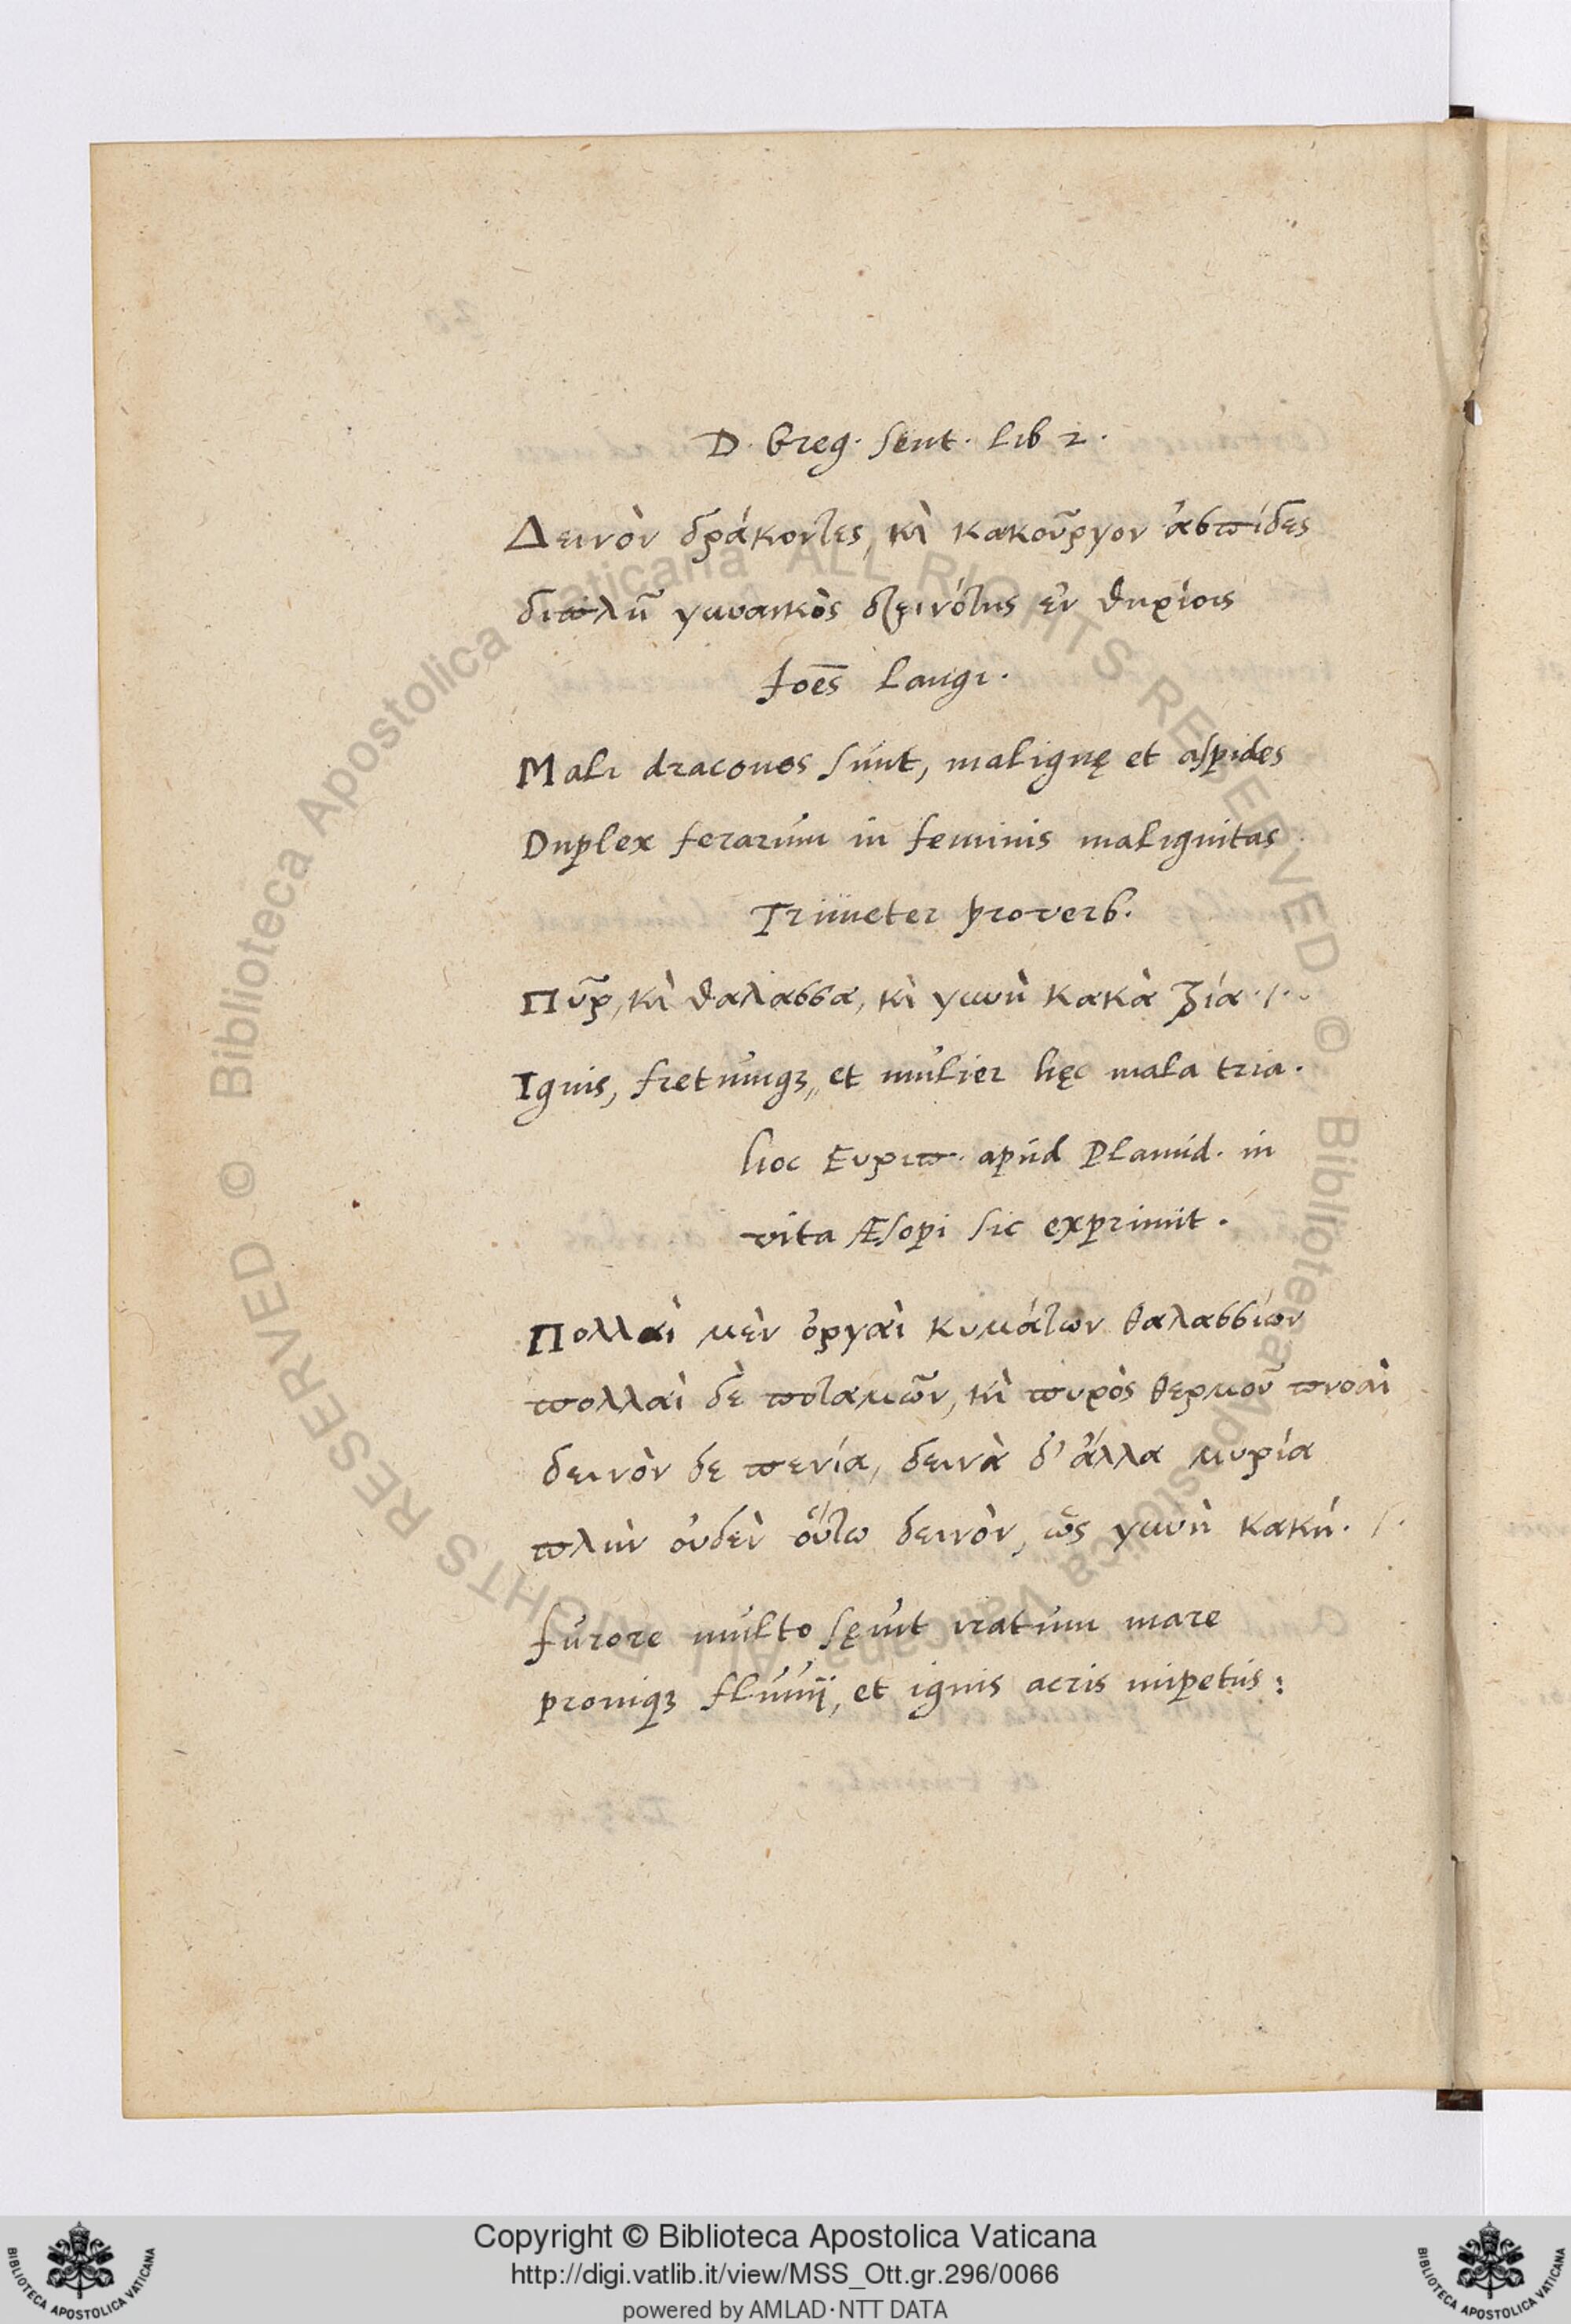 D. Greg. Sent. Lib 2.
Δεινὸν δράκοντες, κὶ κακοῦργον ἀσπίδες
διπλῆ γυναικὸς δεινότης ἐν θηρίοις
Joēs Langi.
Mali dracones sunt, malignę et aspides
Duplex ferarum in feminis malignitas
Trimeter proverb.
Πῦρ, κὶ θαλασσα, κὶ γυνὴ κακὰ τρία ·/·
Ignis, fretumqȝ, et mulier hęc mala tria.
hoc Ευριπ. apud Planud. in
vita Æsopi sic exprimit.
Πολλαὶ μὲν ὀργαὶ κυμάτων θαλασσίων
πολλαὶ δὲ ποταμῶν, κὶ πυρὸς θερμοῦ πνοαὶ
δεινὸν δε πενία, δεινὰ δ' ἄλλα μυρία
πλὴν οὐδὲν οὕτω δεινὸν, ὡς γυνὴ κακή. /.
furore multo sęvit iratum mare
proniqȝ fluvij, et ignis acris impetus:
Copyright © Biblioteca Apostolica Vaticana
http://digi.vatlib.it/view/MSS_Ott.gr.296/0066
powered by AMLAD·NTT DATA
BIBLIOTECA APOSTOLICA VATICANA
BIBLIOTECA APOSTOLICA VATICANA
© Biblioteca Apostolica Vaticana ALL RIGHTS RESERVED
© Biblioteca Apostolica Vaticana ALL RIGHTS RESERVED